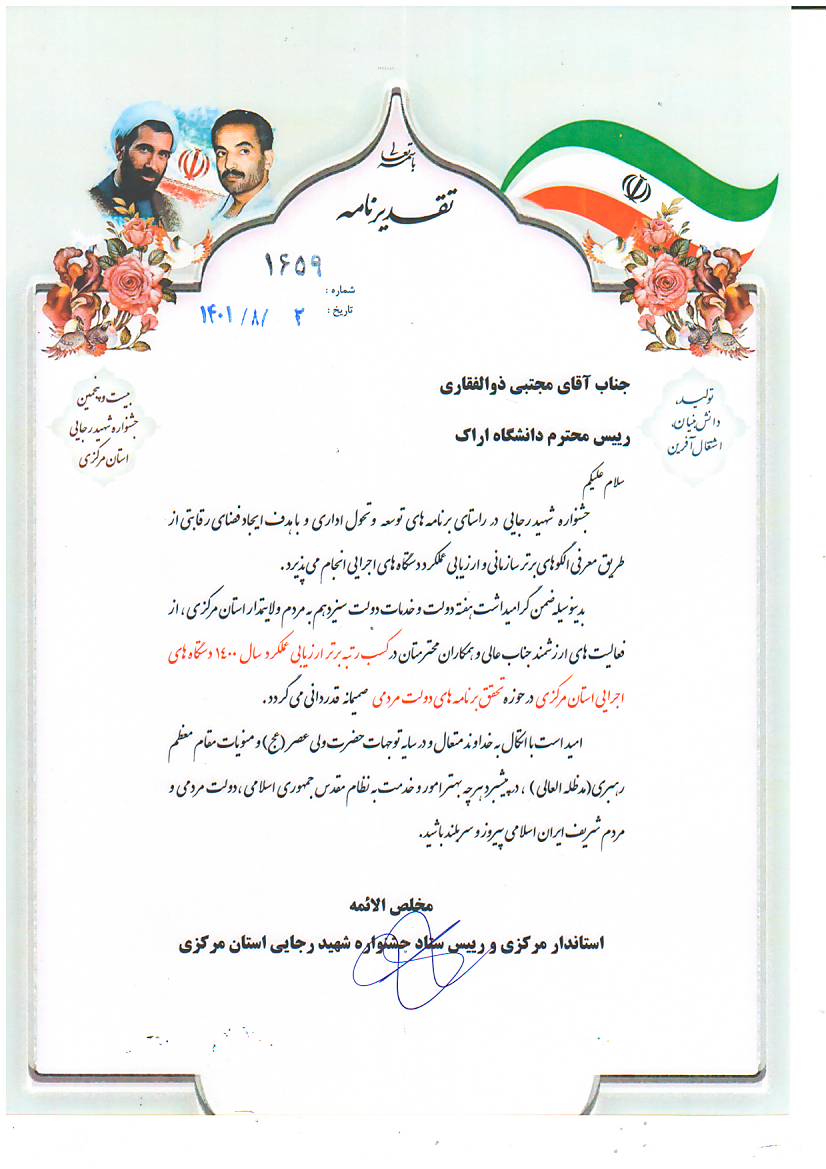 باسمه تعالی
تقدیرنامه
شماره : ۱۶۵۹
تاریخ : ۱۴۰۱/۸/۲
بیست و پنجمین
جشنواره شهید رجایی
استان مرکزی
تولید،
دانش بنیان،
اشتغال آفرین
جناب آقای مجتبی ذوالفقاری
رییس محترم دانشگاه اراک
سلام علیکم
جشنواره شهید رجایی در راستای برنامه های توسعه و تحول اداری و با هدف ایجاد فضای رقابتی از
طریق معرفی الگوهای برتر سازمانی و ارزیابی عملکرد دستگاه های اجرایی انجام می پذیرد.
بدینوسیله ضمن گرامیداشت هفته دولت و خدمات دولت سیزدهم به مردم ولایتمدار استان مرکزی، از
فعالیت های ارزشمند جناب عالی و همکاران محترمتان در کسب رتبه برتر ارزیابی عملکرد سال ۱۴۰۰ دستگاه های
اجرایی استان مرکزی در حوزه تحقق برنامه های دولت مردمی صمیمانه قدردانی می گردد.
امید است با اتکال به خداوند متعال و در سایه توجهات حضرت ولی عصر (عج) و منویات مقام معظم
رهبری(مدظله العالی) ، در پیشبرد هرچه بهتر امور و خدمت به نظام مقدس جمهوری اسلامی ،دولت مردمی و
مردم شریف ایران اسلامی پیروز و سربلند باشید.
مخلص الائمه
استاندار مرکزی و رییس ستاد جشنواره شهید رجایی استان مرکزی